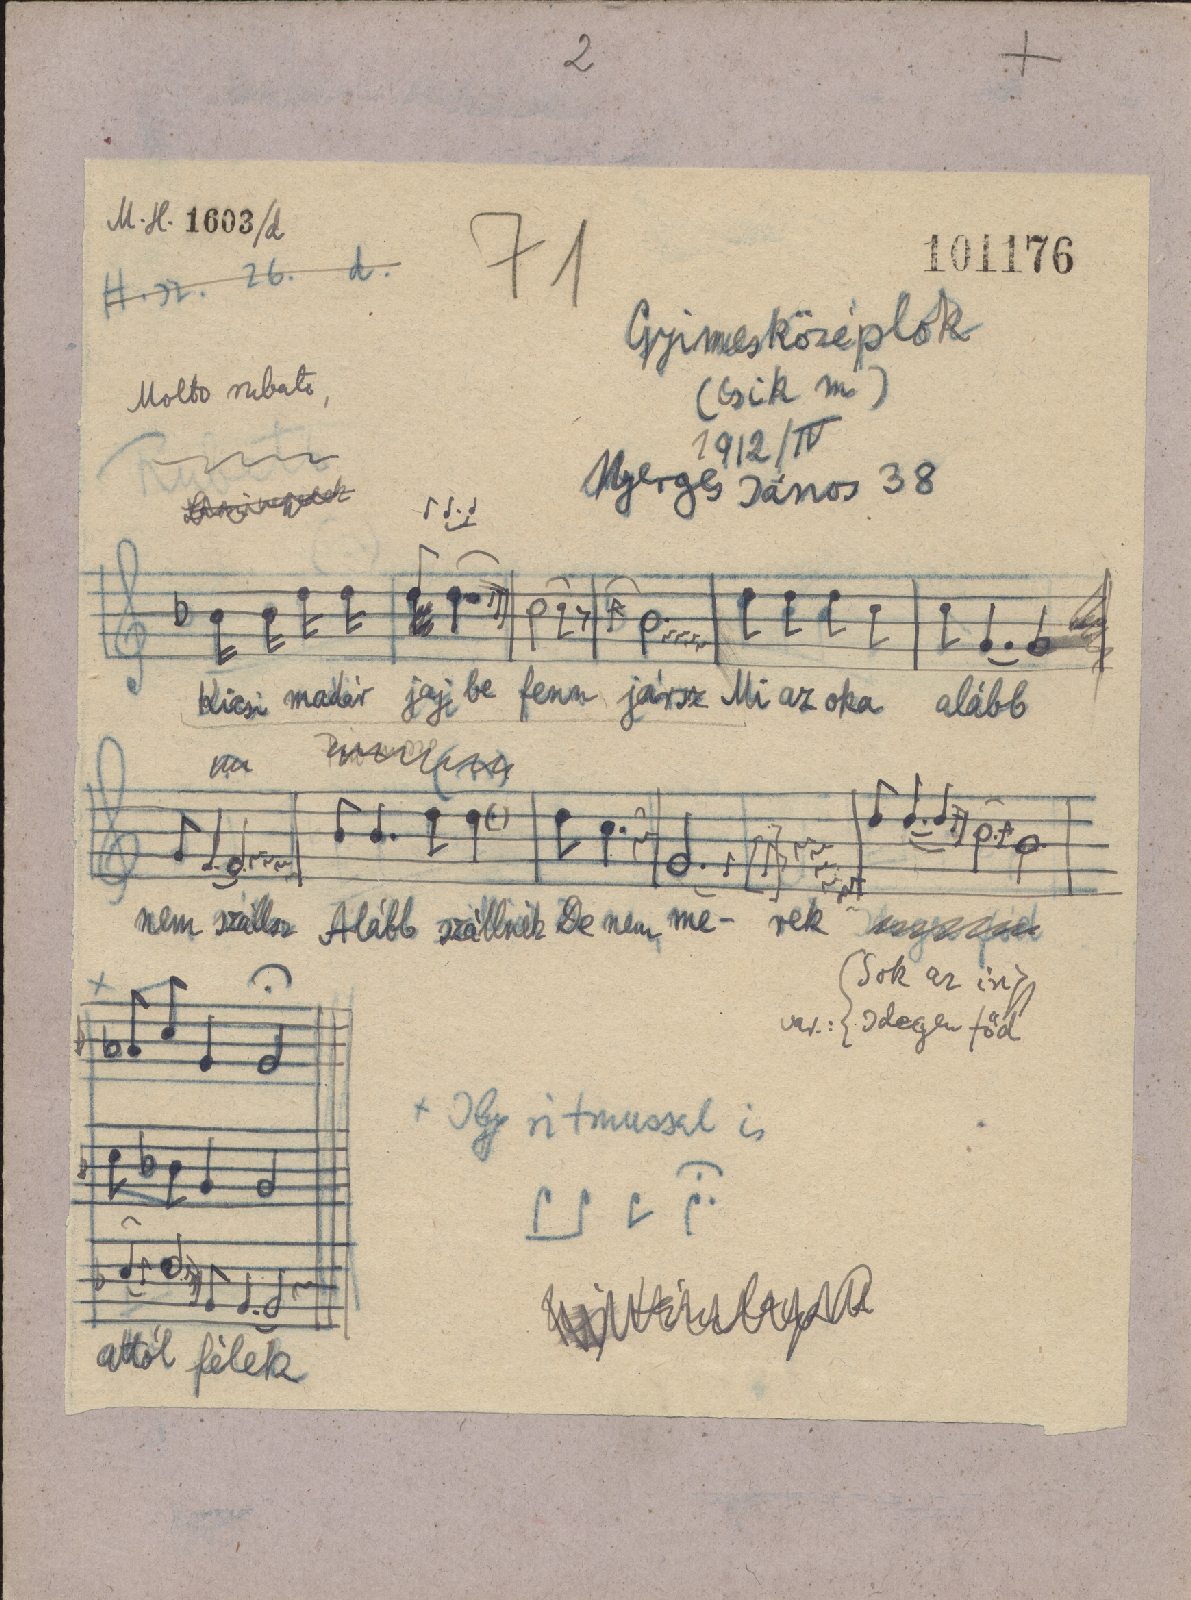 2 +
M. H. 1603/d
71
101176
H. sz. 26. d.
Gyimesközéplok
(Csik m.)
1912/IV
Nyerges János 38
Molto rubato,
Rubato
Kicsi madár jaj be fenn jársz Mi az oka alább
nem szállsz Alább szállnék De nem me- rek
(Sok az irigy
var.: Idegen föd
+
+ Igy ritmussal is
attól félek